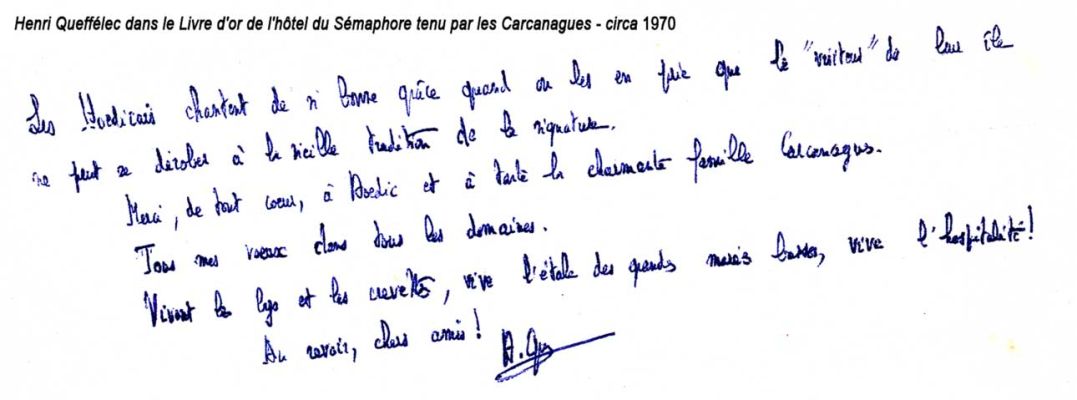 Henri Queffélec dans le Livre d'or de l'hôtel du Sémaphore tenu par les Carcanagues - circa 1970
Les Hoedicais chantent de si bonne grâce quand on les en prie que le "visiteur" de leur île
ne peut se dérober à la vieille tradition de la signature.
Merci, de tout coeur, à Hoedic et à toute la charmante famille Carcanagues.
Tous mes voeux dans tous les domaines.
Vivent les lys et les crevettes, vive l'étale des grandes marées basses, vive l'hospitalité!
Au revoir, chers amis!
H. Qu